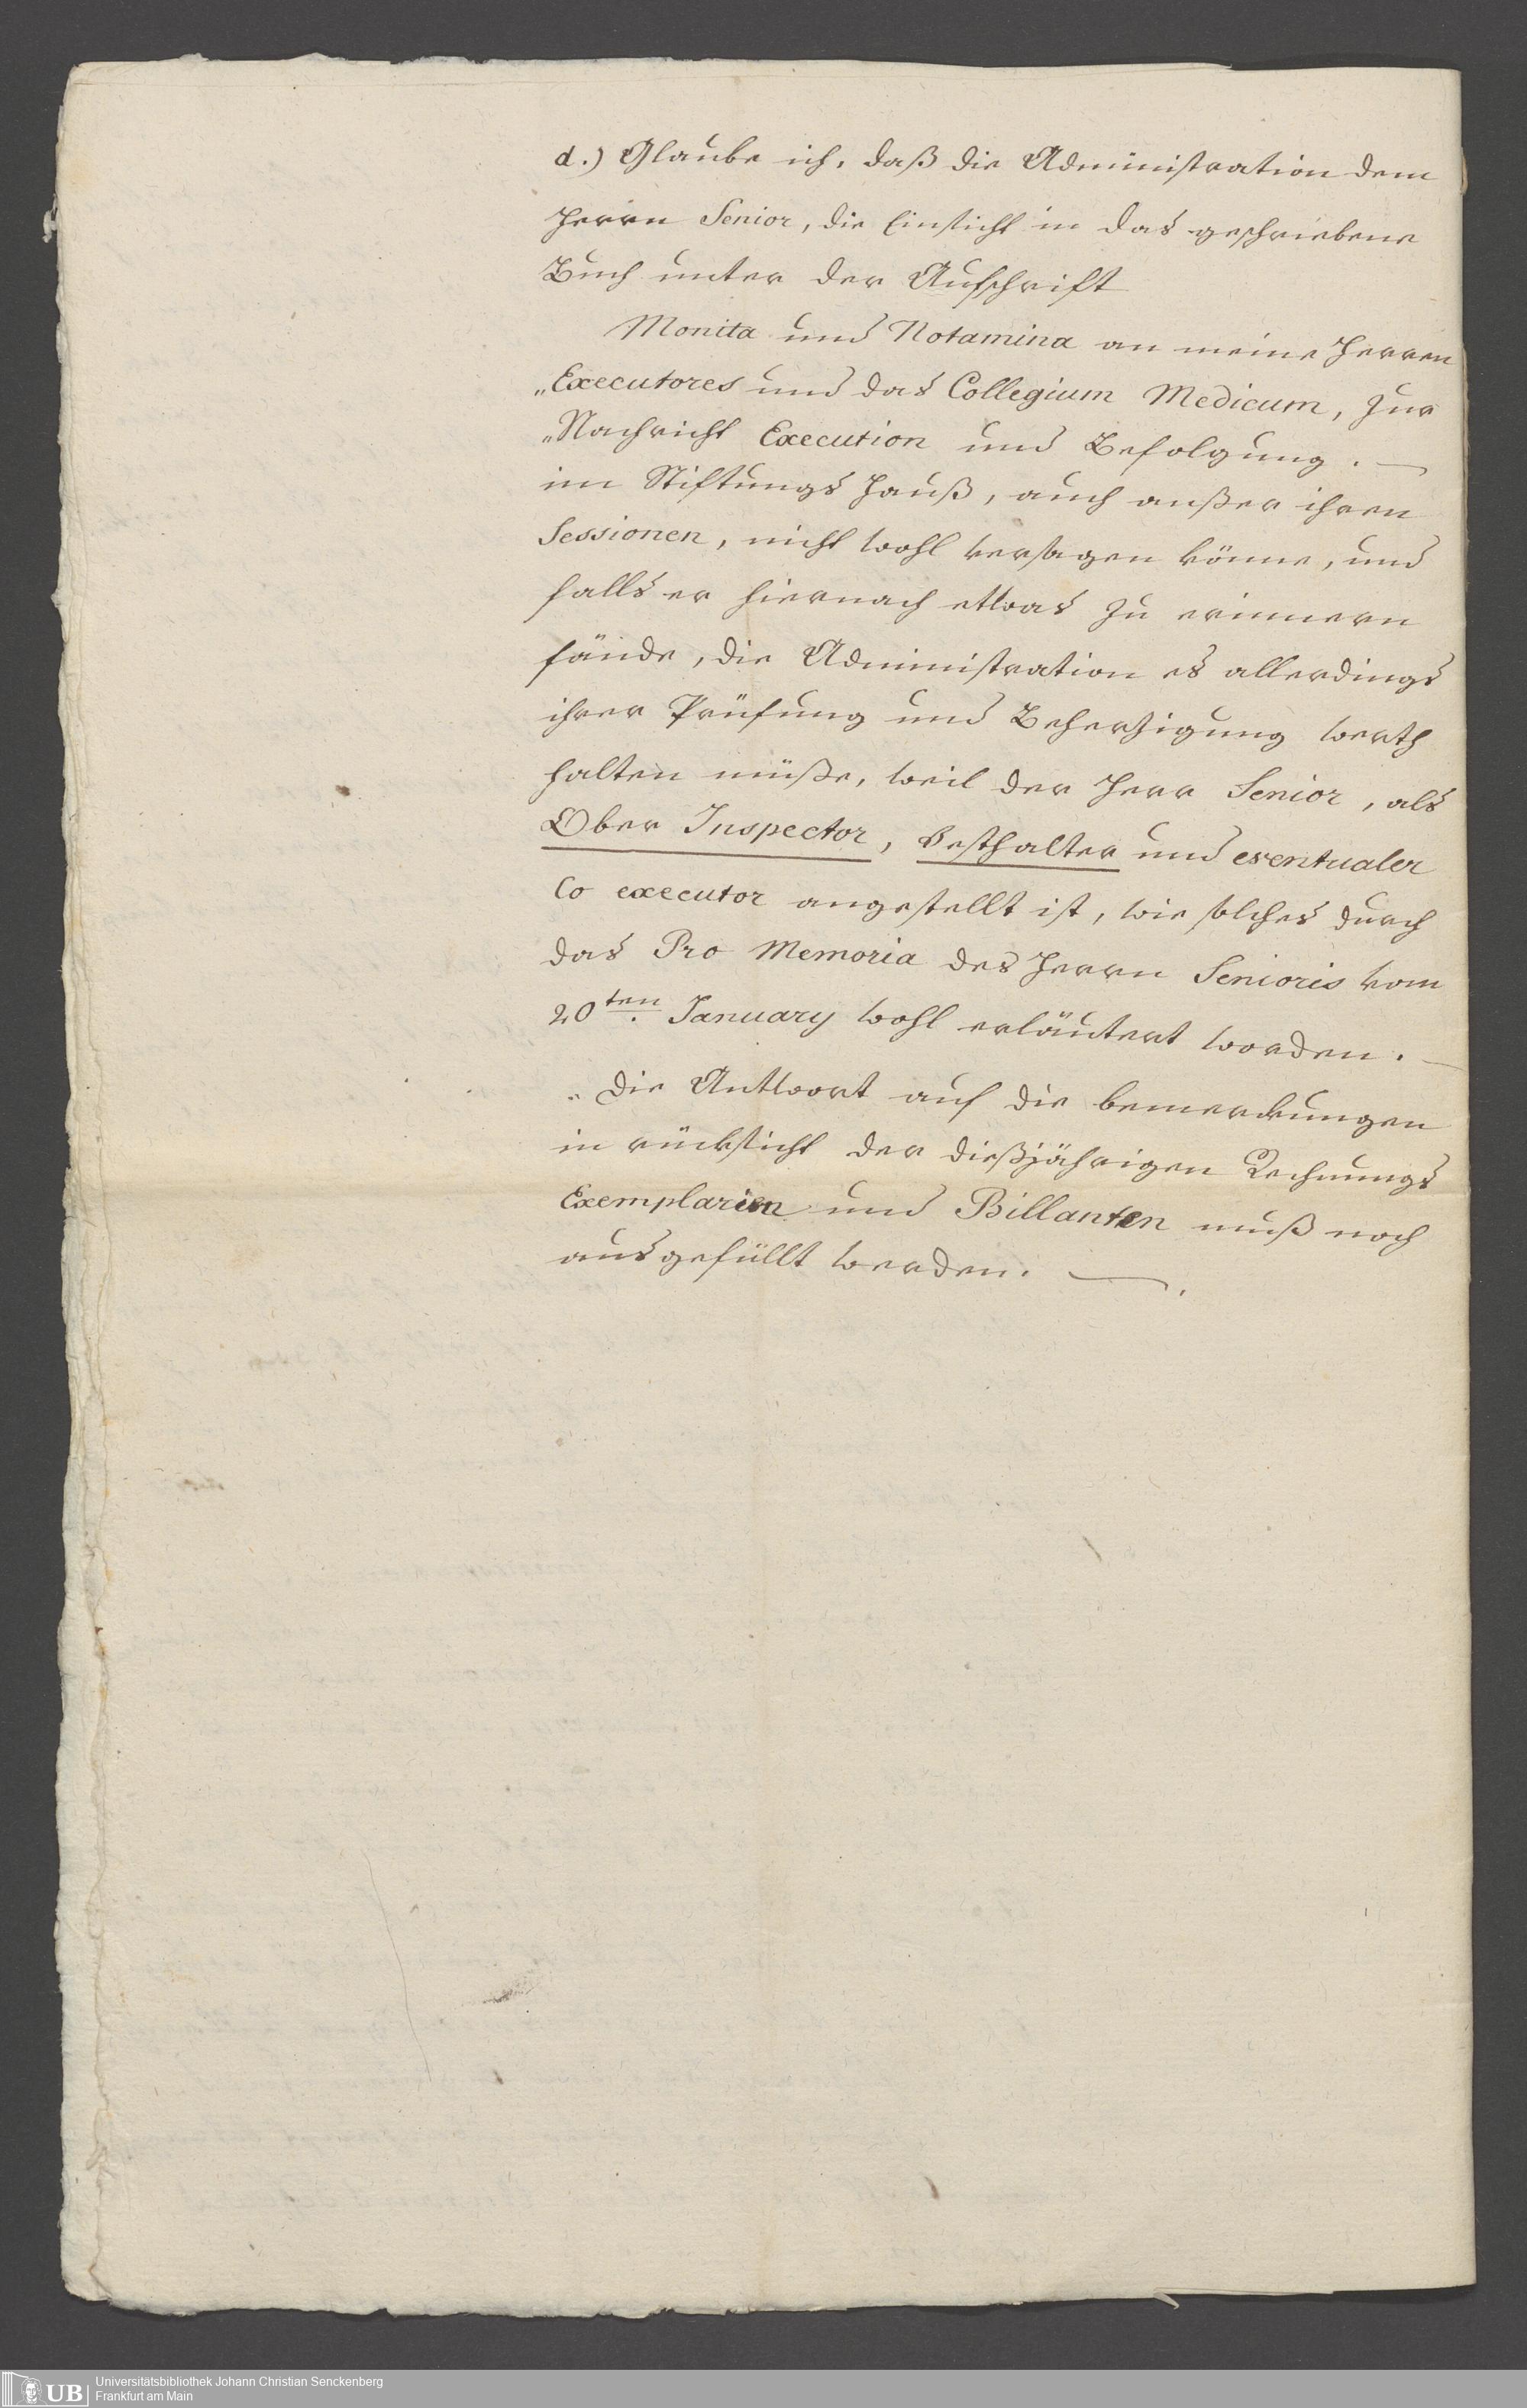 d.) Glaube ich, daß die Administration dem
Herrn Senior, die Einsicht in das geschriebene
Buch unter der Aufschrift
Monita und Notamina an meine Herren
„Executores und das Collegium Medicum, zur
„Nachricht Execution und Befolgung. —
im Stiftungs Hauß, auch außer ihren
Sessionen, nicht wohl versagen könne, und
falls er hiernach etwas zu erinnern
fände, die Administration es allerdings
ihrer Prüfung und Beherzigung werth
halten müße, weil der Herr Senior, als
Ober Inspector, Festhalter und eventualer
Co executor angestellt ist, wie solches durch
das Pro Memoria des Herrn Senioris vom
20ten. January wohl erläutert worden. —
„die Antwort auf die bemerkungen
in rücksicht der dießjährigen Rechnungs
Exemplarien und Billanten muß noch
ausgefüllt werden. —.
UB
Universitätsbibliothek Johann Christian Senckenberg
Frankfurt am Main